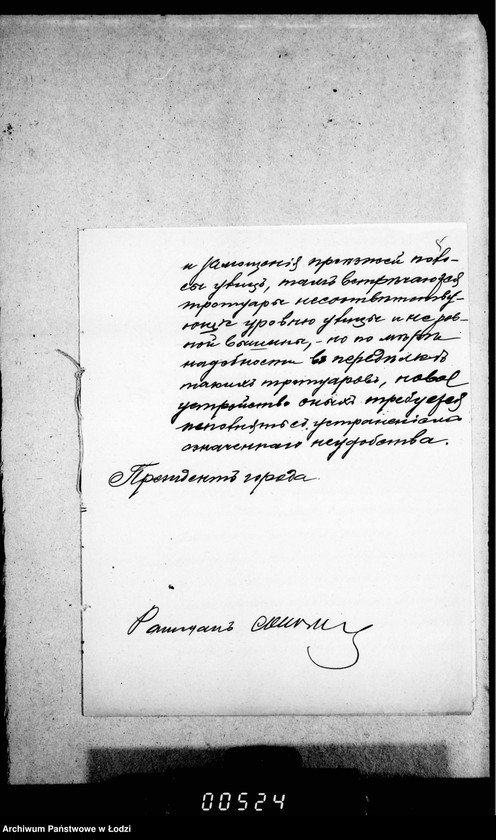 и замощенія проѣзжей поло-
сы улицъ, тамъ встрѣчаются
тротуары несоотвѣтству-
ющіе уровню улицы и неров-
ной вышины, - но по мѣрѣ
надобности въ передѣлкѣ
такихъ тротуаровъ, новое
устройство оныхъ требуется
исполнять съ устраненіемъ
означеннаго неудобства.
Президентъ города
00524
Archiwum Państwowe w Łodzi